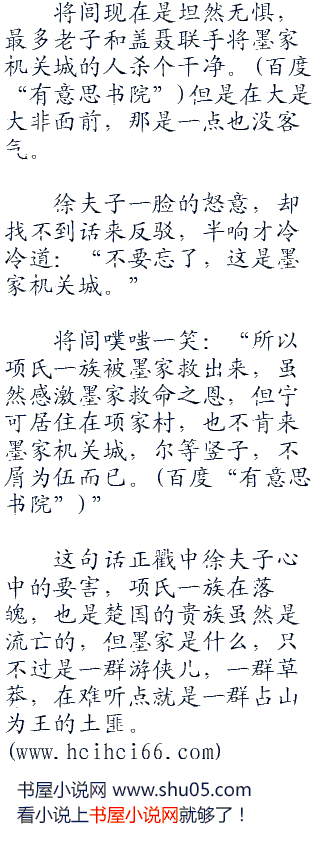 将闾现在是坦然无惧，
最多老子和盖聂联手将墨家
机关城的人杀个干净。(百度
“有意思书院”)但是在大是
大非面前，那是一点也没客
气。
徐夫子一脸的怒意，却
找不到话来反驳，半响才冷
冷道：“不要忘了，这是墨
家机关城。”
将闾噗嗤一笑：“所以
项氏一族被墨家救出来，虽
然感激墨家救命之恩，但宁
可居住在项家村，也不肯来
墨家机关城，尔等竖子，不
屑为伍而已。(百度“有意思
书院”)”
这句话正戳中徐夫子心
中的要害，项氏一族在落
魄，也是楚国的贵族虽然是
流亡的，但墨家是什么，只
不过是一群游侠儿，一群草
莽，在难听点就是一群占山
为王的土匪。
(www.hcihci66.com)
书屋小说网 www.shu05.com
看小说上书屋小说网就够了！